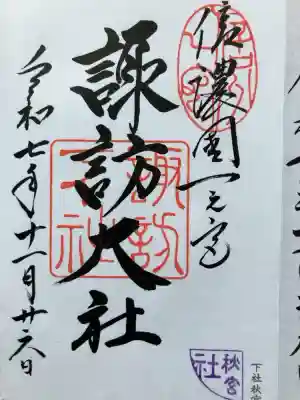 信濃國一之宮
諏訪大社
令和七年十一月廿六日
諏訪
大社
秋宮
社
下社秋宮